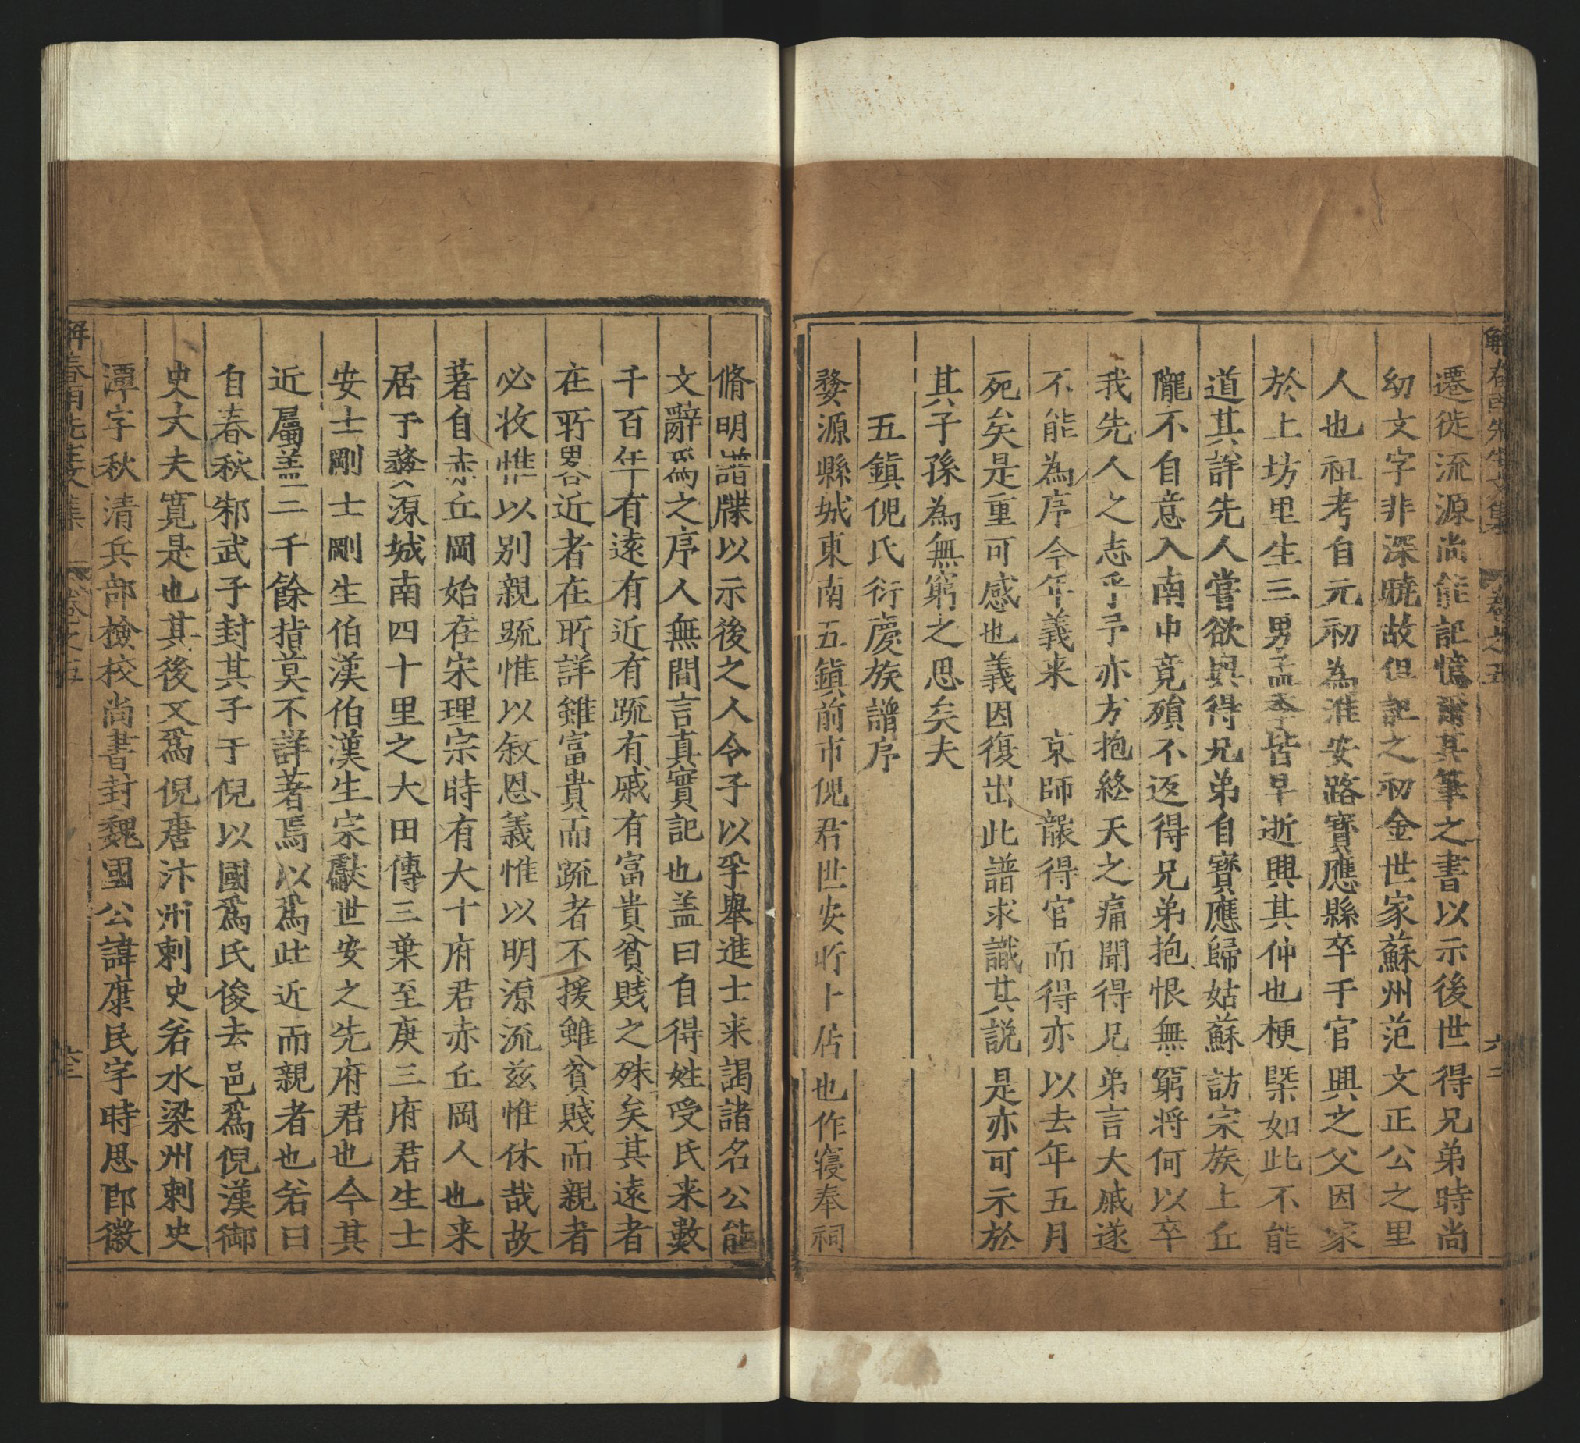 遷徙流源尚能記憶爾其筆之書以示後世得兄弟時尚
幼文字非深曉故但記之初金世家蘇州范文正公之里
人也祖考自元初為淮安路寶應縣卒于官興之父因家
於上坊里生三男孟季皆早逝興其仲也梗槩如此不能
道其詳先人嘗欲與得兄弟自寶應歸姑蘇訪宗族上丘
隴不自意入南中竟殞不返得兄弟抱恨無窮將何以卒
我先人之志乎予亦方抱終天之痛聞得兄弟言大戚遂
不能為序今年義来 京師龖得官而得亦以去年五月
死矣是重可感也義因復出此譜求識其説是亦可示於
其子孫為無窮之思矣夫
五鎮倪氏衍慶族譜序
婺源縣城東南五鎮前市倪君世安所卜居也作寢奉祠
脩明譜牒以示後之人令子以孚舉進士来謁諸名公能
文辭爲之序人無間言真實記也盖曰自得姓受氏来數
千百年有遠有近有疏有戚有富貴貧賤之殊矣其遠者
在所畧近者在所詳雖富貴而疏者不援雖貧賤而親者
必收惟以别親疏惟以敘恩義惟以明源流兹惟休哉故
著自赤丘岡始在宋理宗時有大十府君赤丘岡人也来
居于婺源城南四十里之大田傳三葉至庚三府君生士
安士剛士剛生伯漢伯漢生宗獻世安之先府君也今其
近屬盖三千餘指莫不詳著焉以爲此近而親者也若曰
自春秋邾武子封其子于倪以國爲氏後去邑爲倪漢御
史大夫寬是也其後又爲倪唐汴州刺史若水梁州刺史
潭字秋清兵部檢校尚書封魏國公諱康民字時思郎徽
解春雨先生文集 卷之五 六二
解春雨先生文集 卷之五 六三